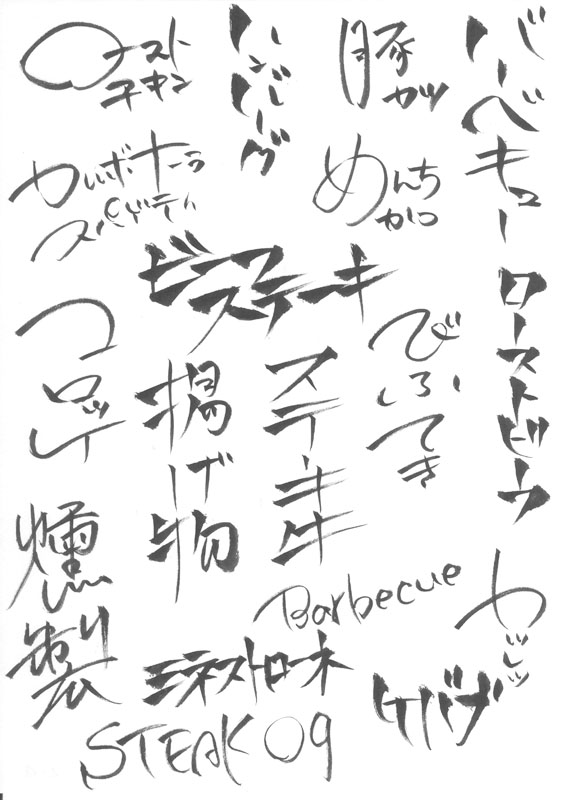 ロースト
チキン
ハンバーグ
豚
カツ
バーベキュー
カルボナーラ
スパゲティ
めんち
かつ
ビーフ
ステーキ
コロッケ
揚げ物
ステーキ
びふてき
ローストビーフ
燻製
Barbecue
カツレツ
ミネストローネ
ケバブ
STEAK 09